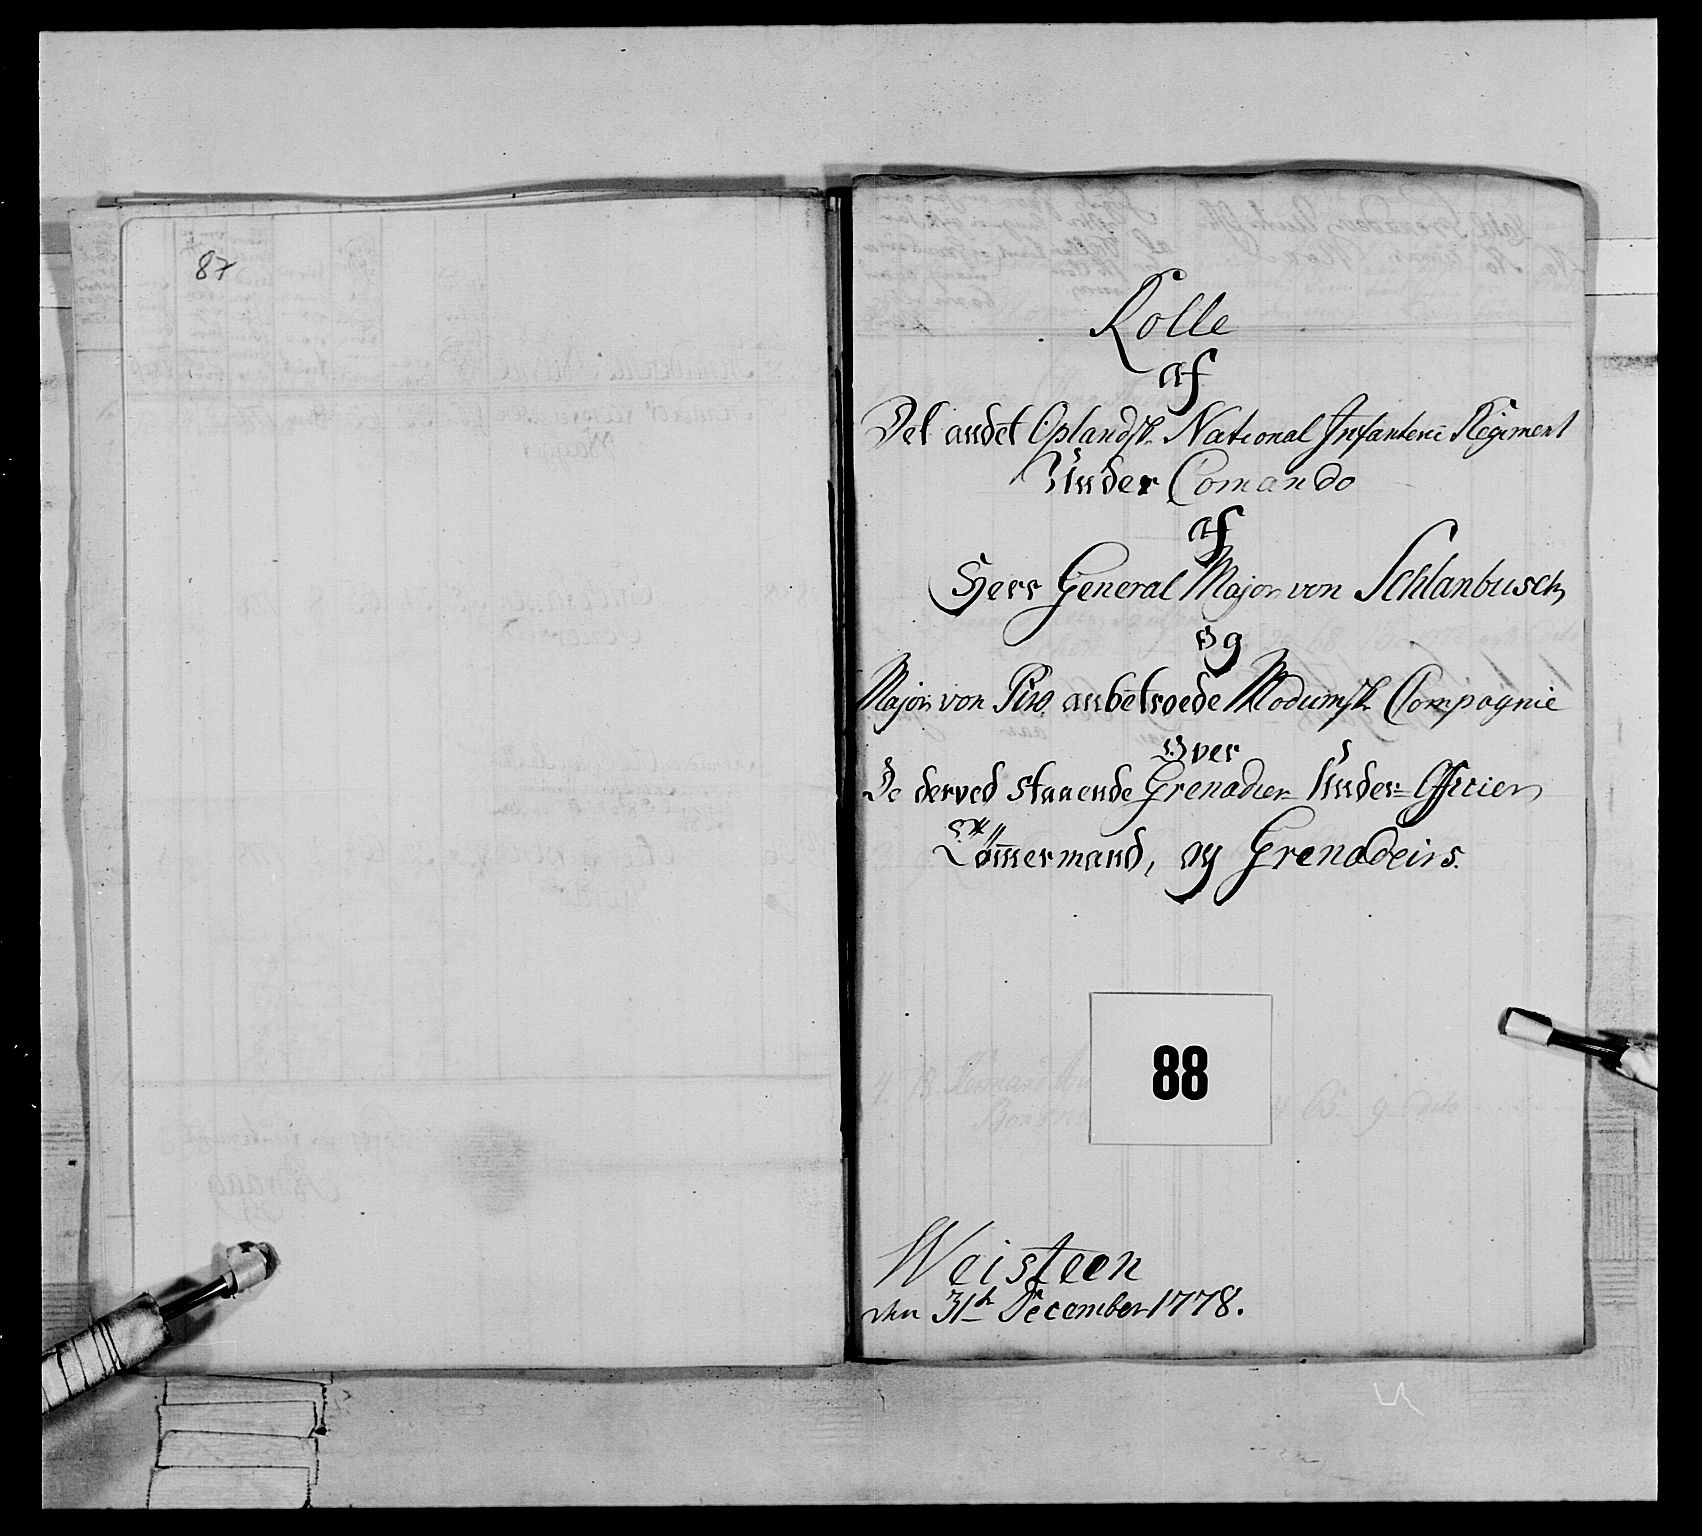 87
Rolle
af
Det andet Oplandsk. National Infanterie Regiment
Under Comando
af
Herr General Major von Schlanbusch
og
Major von Piro anbetroede Modumsk Compagnie
Over
De derved staaende Grenadier Under-Officier
Tømmermand, og Grenadeirs.
88
Weisteen
den 31te December 1778.